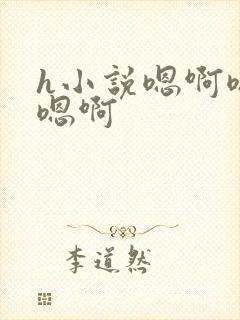 h小說嗯啊
嗯啊
李道然